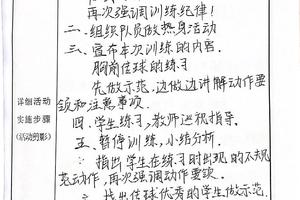 再次强调训练纪律！
二、组织队员做热身活动
三、宣布本次训练的内容.
胸前传球的练习
先做示范，边做边讲解动作要
领和注意事项.
四、学生练习，教师巡视指导.
五、暂停训练，小结分析.
指出学生在练习时出现的不规
范动作，再次强调动作要领.
找出传球优秀的学生做示范.
详细活动
实施步骤
(活动剪影)